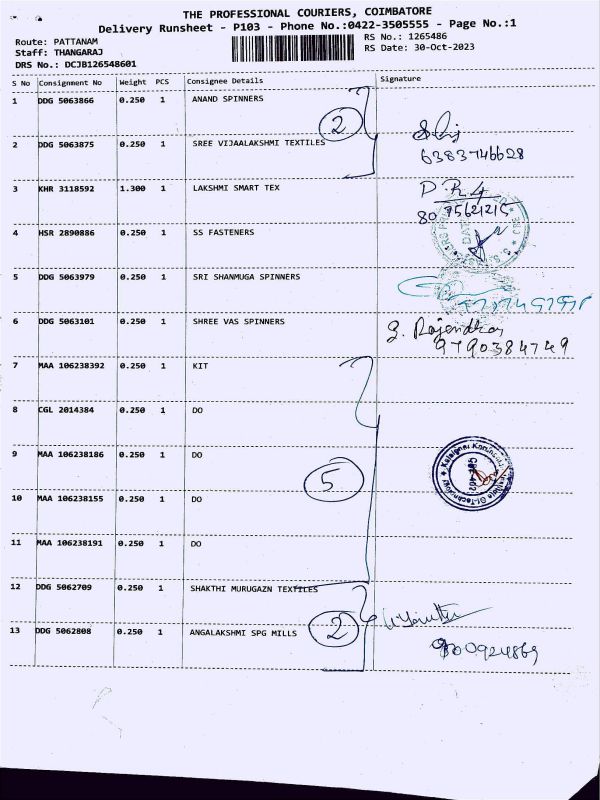 THE PROFESSIONAL COURIERS, COIMBATORE
Delivery Runsheet - P103 - Phone No.:0422-3505555 - Page No.:1
Route: PATTANAM
RS No.: 1265486
Staff: THANGARAJ
RS Date: 30-Oct-2023
DRS No.: DCJB126548601
S No Consignment No Weight PCS Consignee Details Signature
1 DDG 5063866 0.250 1 ANAND SPINNERS
2
2 DDG 5063875 0.250 1 SREE VIJAALAKSHMI TEXTILES
6383746628
3 KHR 3118592 1.300 1 LAKSHMI SMART TEX
4 HSR 2890886 0.250 1 SS FASTENERS
5 DDG 5063979 0.250 1 SRI SHANMUGA SPINNERS
6 DDG 5063101 0.250 1 SHREE VAS SPINNERS
9790384749
7 MAA 106238392 0.250 1 KIT
8 CGL 2014384 0.250 1 DO
9 MAA 106238186 0.250 1 DO
5
10 MAA 106238155 0.250 1 DO
11 MAA 106238191 0.250 1 DO
12 DDG 5062709 0.250 1 SHAKTHI MURUGAZN TEXTILES
2
13 DDG 5062808 0.250 1 ANGALAKSHMI SPG MILLS